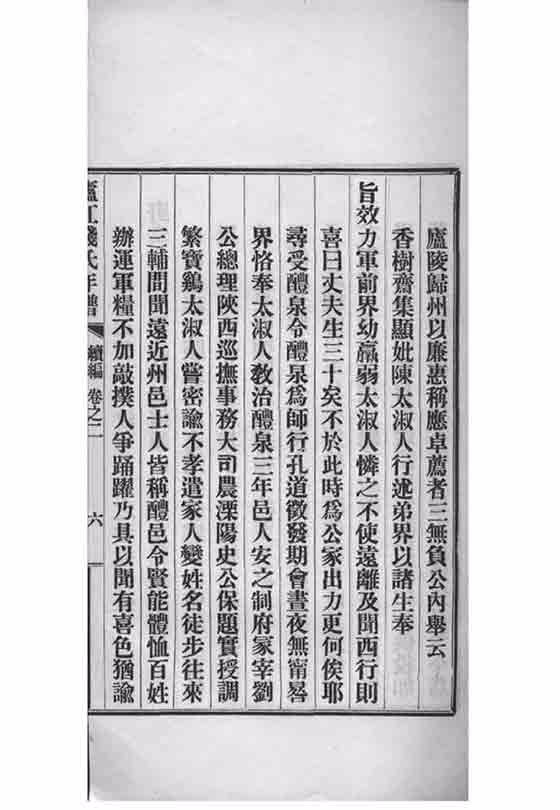 廬陵歸州以廉惠稱應卓薦者三無負公內舉云
香樹齋集顯妣陳太淑人行述弟界以諸生奉
旨效力軍前界幼羸弱太淑人憐之不使遠離及聞西行則
喜曰丈夫生三十矣不於此時爲公家出力更何俟耶
尋受醴泉令醴泉爲師行孔道徵發期會晝夜無甯晷
界恪奉太淑人敎治醴泉三年邑人安之制府冢宰劉
公總理陝西巡撫事務大司農溧陽史公保題實授調
繁寶鷄太淑人嘗密諭不孝遣家人變姓名徒步往來
三輔間聞遠近州邑士人皆稱醴邑令賢能體恤百姓
辦運軍糧不加敲撲人爭踊躍乃具以聞有喜色猶諭
廬江錢氏年譜 續編 卷之二 六